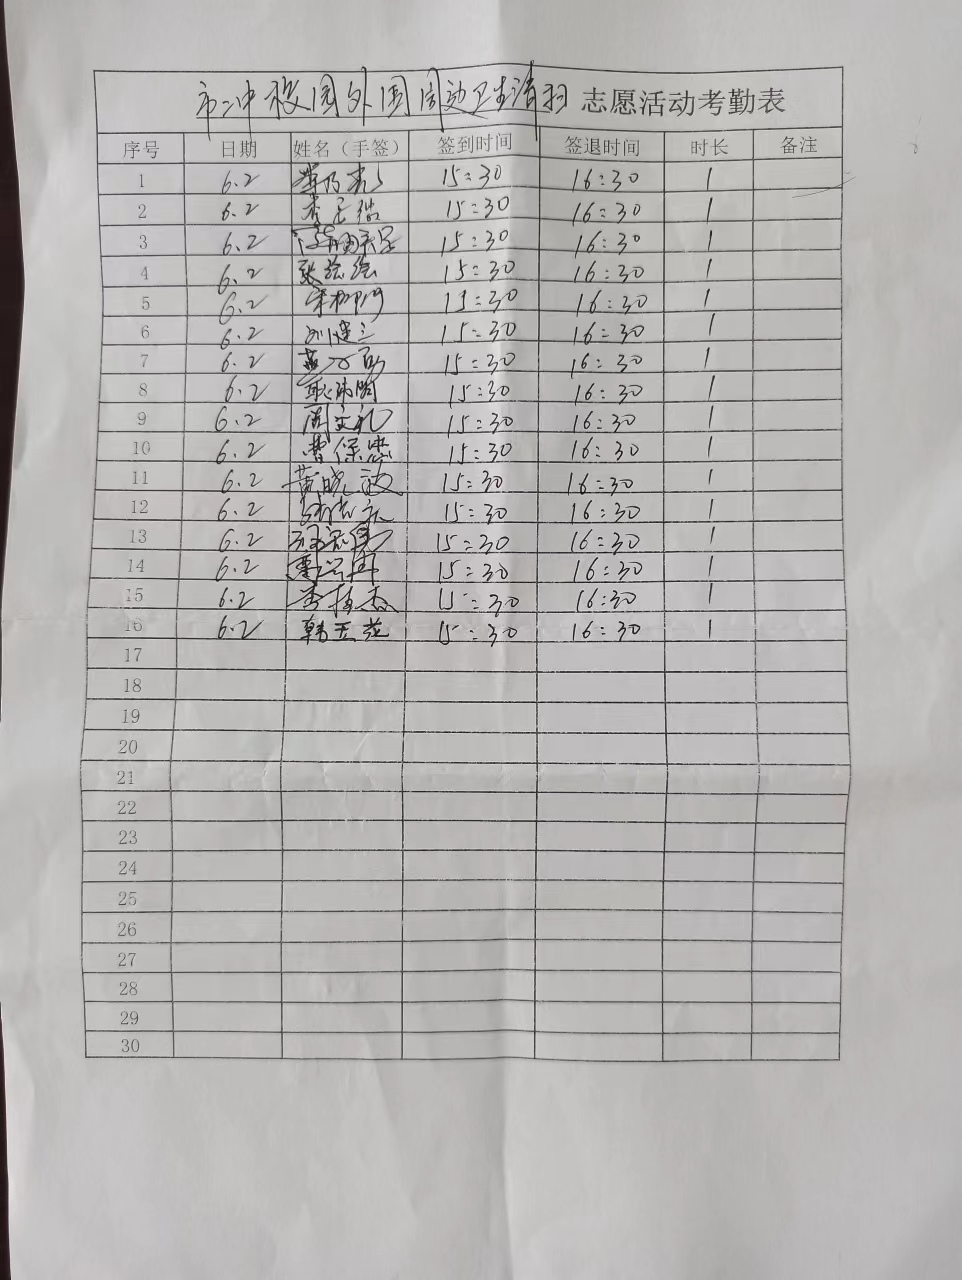 市二中校园外围周边卫生清扫 志愿活动考勤表
序号 日期 姓名（手签） 签到时间 签退时间 时长 备注
1 6.2 15:30 16:30 1
2 6.2 15:30 16:30 1
3 6.2 15:30 16:30 1
4 6.2 张绘绘 15:30 16:30 1
5 6.2 15:30 16:30 1
6 6.2 刘建立 15:30 16:30 1
7 6.2 15:30 16:30 1
8 6.2 15:30 16:30 1
9 6.2 周文礼 15:30 16:30 1
10 6.2 曹保忠 15:30 16:30 1
11 6.2 黄晓波 15:30 16:30 1
12 6.2 15:30 16:30 1
13 6.2 15:30 16:30 1
14 6.2 15:30 16:30 1
15 6.2 15:30 16:30 1
16 6.2 韩玉花 15:30 16:30 1
17
18
19
20
21
22
23
24
25
26
27
28
29
30